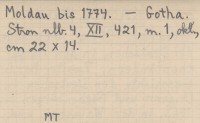 Moldau bis 1774. — Gotha.
Stron nlb. 4, XII, 421, m. 1, okł.,
cm 22 x 14.
MT